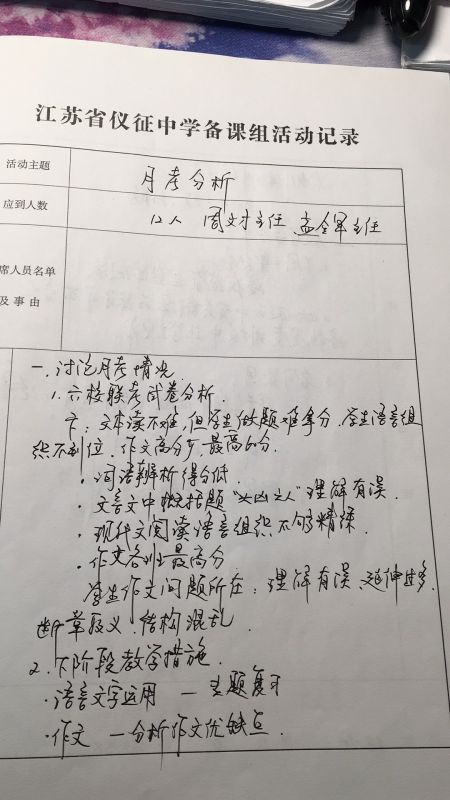 江苏省仪征中学备课组活动记录
活动主题 月考分析
应到人数 12人 周文才主任 孟全军主任
席人员名单
及事由
一、讨论月考情况
1. 六校联考试卷分析.
卞：文本读不难，但学生做题难拿分，学生语言组
织不到位，作文高分少，最高60分.
·词语辨析得分低.
·文言文中概括题 理解有误.
·现代文阅读语言组织不够精练.
·作文 最高分
学生作文问题所在：理解有误、延伸过多、
断章取义、结构混乱
2. 下阶段教学措施.
·语言文字运用 — 专题复习
·作文 — 分析作文优缺点.